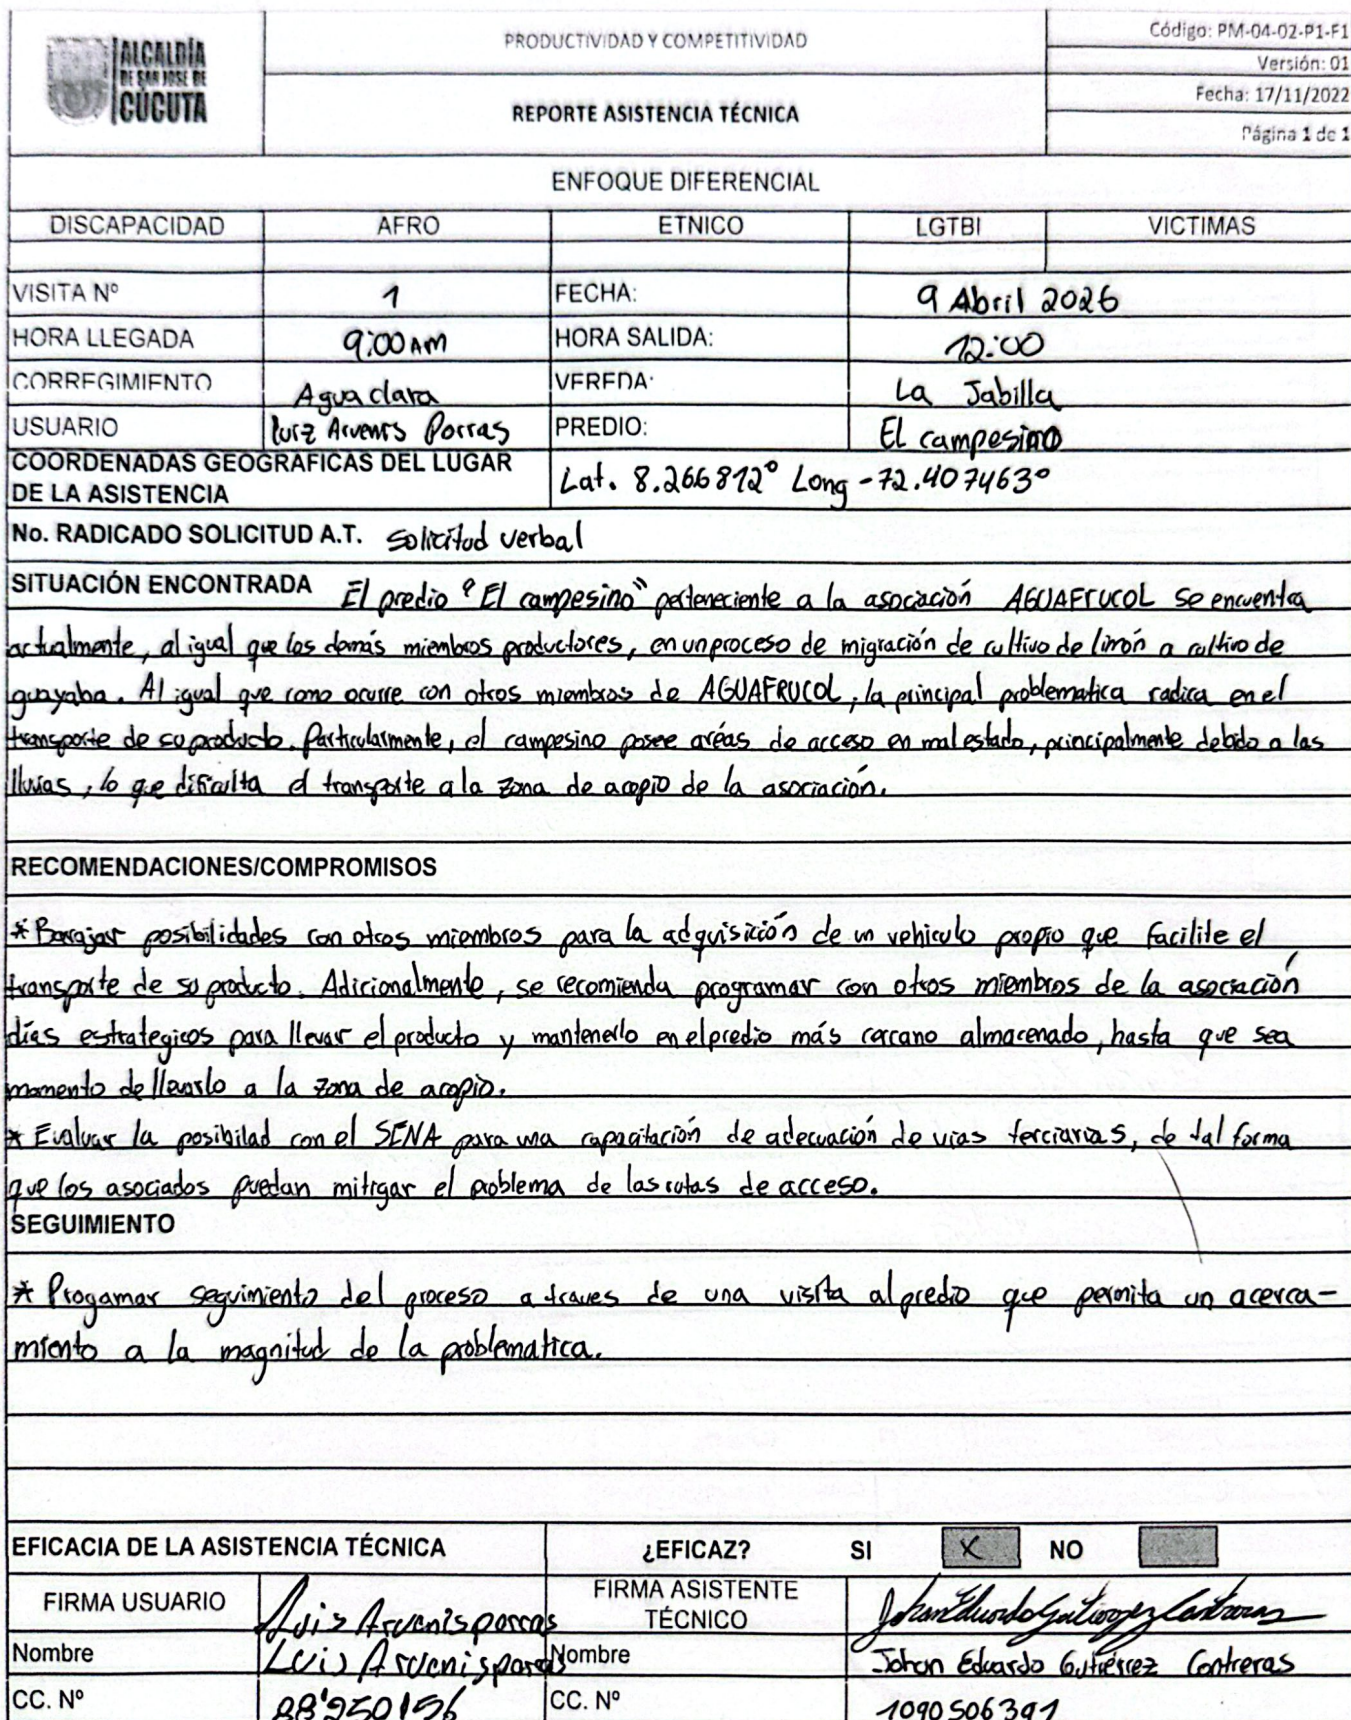 ALCALDÍA
DE SAN JOSE DE
CÚCUTA
PRODUCTIVIDAD Y COMPETITIVIDAD
REPORTE ASISTENCIA TÉCNICA
Código: PM-04-02-P1-F1
Versión: 01
Fecha: 17/11/2022
Página 1 de 1
ENFOQUE DIFERENCIAL
DISCAPACIDAD AFRO ETNICO LGTBI VICTIMAS
VISITA Nº 1 FECHA: 9 Abril 2026
HORA LLEGADA 9:00 AM HORA SALIDA: 12:00
CORREGIMIENTO Agua clara VEREDA: La Jabilla
USUARIO Luiz Arvenis Porras PREDIO: El campesino
COORDENADAS GEOGRÁFICAS DEL LUGAR
DE LA ASISTENCIA Lat. 8.266812° Long -72.407463°
No. RADICADO SOLICITUD A.T. solicitud verbal
SITUACIÓN ENCONTRADA El predio "El campesino" perteneciente a la asociación AGUAFRUCOL se encuentra
actualmente, al igual que los demás miembros productores, en un proceso de migración de cultivo de limón a cultivo de
guayaba. Al igual que como ocurre con otros miembros de AGUAFRUCOL, la principal problematica radica en el
transporte de su producto. Particularmente, el campesino posee aréas de acceso en mal estado, principalmente debido a las
lluvias, lo que dificulta el transporte a la zona de acopio de la asociación.
RECOMENDACIONES/COMPROMISOS
* Barajar posibilidades con otros miembros para la adquisición de un vehiculo propio que facilite el
transporte de su producto. Adicionalmente, se recomienda programar con otros miembros de la asociación
días estrategicos para llevar el producto y mantenerlo en el predio más carcano almacenado, hasta que sea
momento de llevarlo a la zona de acopio.
* Evaluar la posibilad con el SENA para una capacitación de adecuación de vias terciarias, de tal forma
que los asociados puedan mitigar el problema de las rutas de acceso.
SEGUIMIENTO
* Progamar seguimiento del proceso a traves de una visita al predio que permita un acerca-
miento a la magnitud de la problematica.
EFICACIA DE LA ASISTENCIA TÉCNICA ¿EFICAZ? SI X NO
FIRMA USUARIO Luis Arvenis porras FIRMA ASISTENTE
TÉCNICO Johan Eduardo Gutierrez Contreras
Nombre Luis Arvenis porras Nombre Johan Eduardo Gutiérrez Contreras
CC. Nº 88'250156 CC. Nº 1090506391